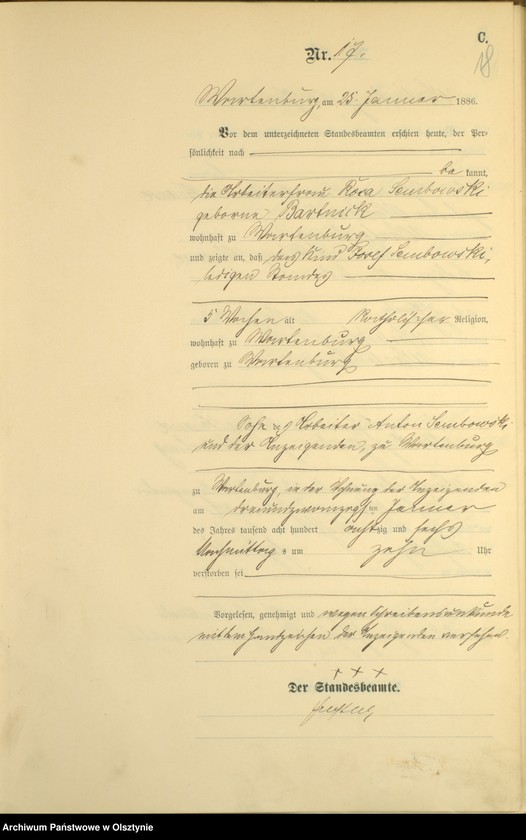 C.
18
Nr. 17.
Wartenburg, am 25. Januar 1886.
Vor dem unterzeichneten Standesbeamten erschien heute, der Per-
sönlichkeit nach
be kannt,
die Arbeiterfrau Rosa Sembowski
geborne Bartnick
wohnhaft zu Wartenburg
und zeigte an, daß das Kind Josef Sembowski,
ledigen Standes
5 Wochen alt katholischer Religion,
wohnhaft zu Wartenburg
geboren zu Wartenburg
Sohn des Arbeiter Anton Sembowski
und der Anzeigenden, zu Wartenburg
zu Wartenburg, in der Wohnung der Anzeigenden
am dreiundzwanzigsten Januar
des Jahres tausend acht hundert achtzig und sechs
Nachmittags um zehn Uhr
verstorben sei
Vorgelesen, genehmigt und wegen Schreibensunkunde
mit dem Handzeichen der Anzeigenden versehen.
+ + +
Der Standesbeamte.
Archiwum Państwowe w Olsztynie